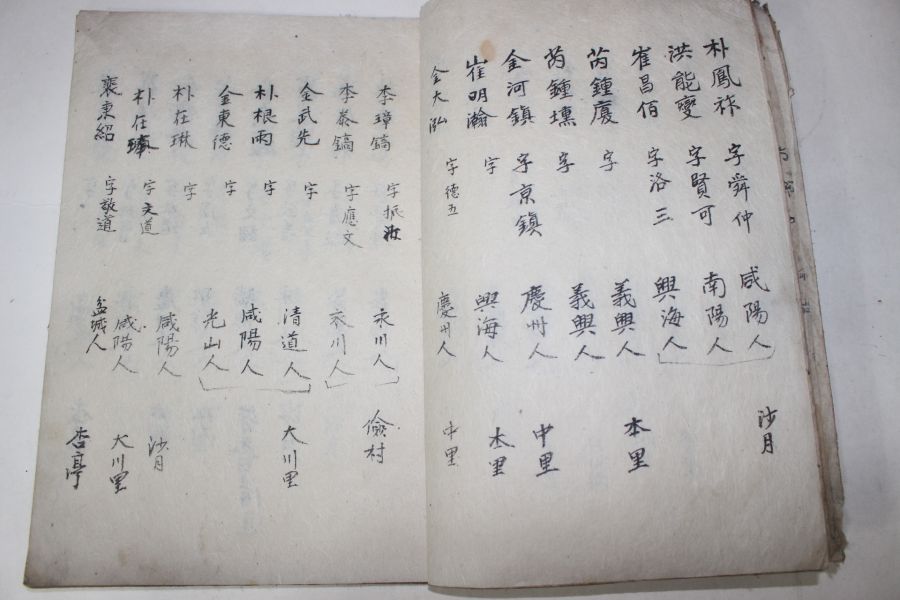 朴鳳祚 字舜仲 咸陽人 沙月
洪能變 字賢可 南陽人
崔昌佰 字洛三 興海人
芮鍾廈 字 義興人 本里
芮鍾壎 字 義興人
金河鎮 字京鎮 慶州人 中里
崔明瀚 字 興海人 本里
金大泓 字德五 慶州人 中里
李璋鎬 字振汝 永川人 儉村
李泰鎬 字應文 永川人
金武先 字 清道人 大川里
朴根雨 字 咸陽人
金東德 字 光山人
朴在琳 字 咸陽人 沙月
朴在 字天道 咸陽人 大川里
裵東紹 字敬道 盆城人 杏亭